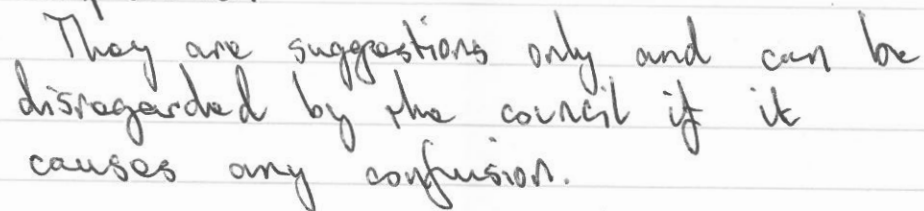 They are suggestions only and can be
disregarded by the council if it
causes any confusion.